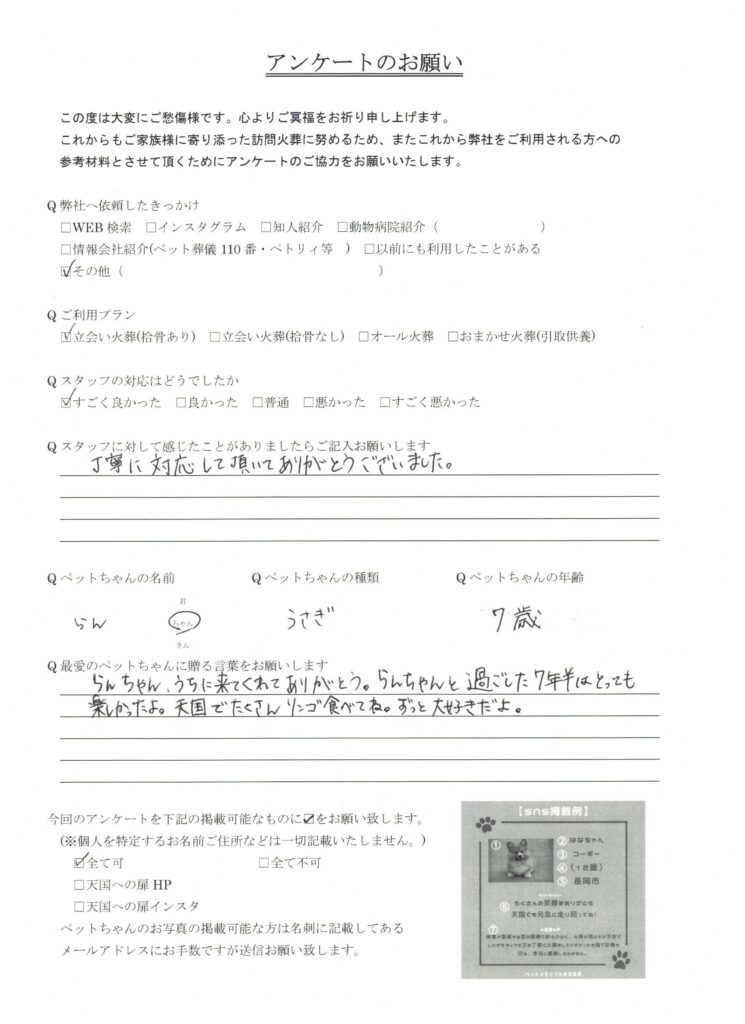 アンケートのお願い
この度は大変にご愁傷様です。心よりご冥福をお祈り申し上げます。
これからもご家族様に寄り添った訪問火葬に努めるため、またこれから弊社をご利用される方への
参考材料とさせて頂くためにアンケートのご協力をお願いいたします。
Q 弊社へ依頼したきっかけ
□WEB 検索 □インスタグラム □知人紹介 □動物病院紹介（ ）
□情報会社紹介(ペット葬儀 110 番・ペトリィ等 ) □以前にも利用したことがある
☑その他（ ）
Q ご利用プラン
☑立会い火葬(拾骨あり) □立会い火葬(拾骨なし) □オール火葬 □おまかせ火葬(引取供養)
Q スタッフの対応はどうでしたか
☑すごく良かった □良かった □普通 □悪かった □すごく悪かった
Q スタッフに対して感じたことがありましたらご記入お願いします
丁寧に対応して頂いてありがとうございました。
Q ペットちゃんの名前 Q ペットちゃんの種類 Q ペットちゃんの年齢
君
らん ちゃん うさぎ 7歳
さん
Q 最愛のペットちゃんに贈る言葉をお願いします
らんちゃん、うちに来てくれてありがとう。らんちゃんと過ごした7年半はとっても
楽しかったよ。天国でたくさんリンゴ食べてね。ずっと大好きだよ。
今回のアンケートを下記の掲載可能なものに☑をお願い致します。
(※個人を特定するお名前ご住所などは一切記載いたしません。)
☑全て可 □全て不可
□天国への扉 HP
□天国への扉インスタ
ペットちゃんのお写真の掲載可能な方は名刺に記載してある
メールアドレスにお手数ですが送信お願い致します。
【sns掲載例】
① ② はなちゃん
③ コーギー
④ (12歳)
⑤ 長岡市
⑥ たくさんの笑顔をありがとう
天国でも元気に走り回ってね!
⑦